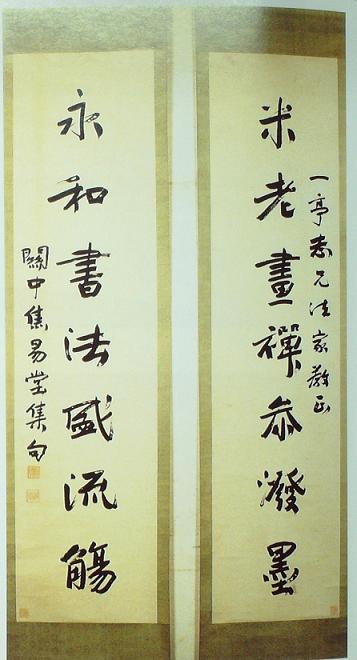 一亭志兄法家教正
米老畫禪參潑墨
永和書法盛流觴
關中焦易堂集句